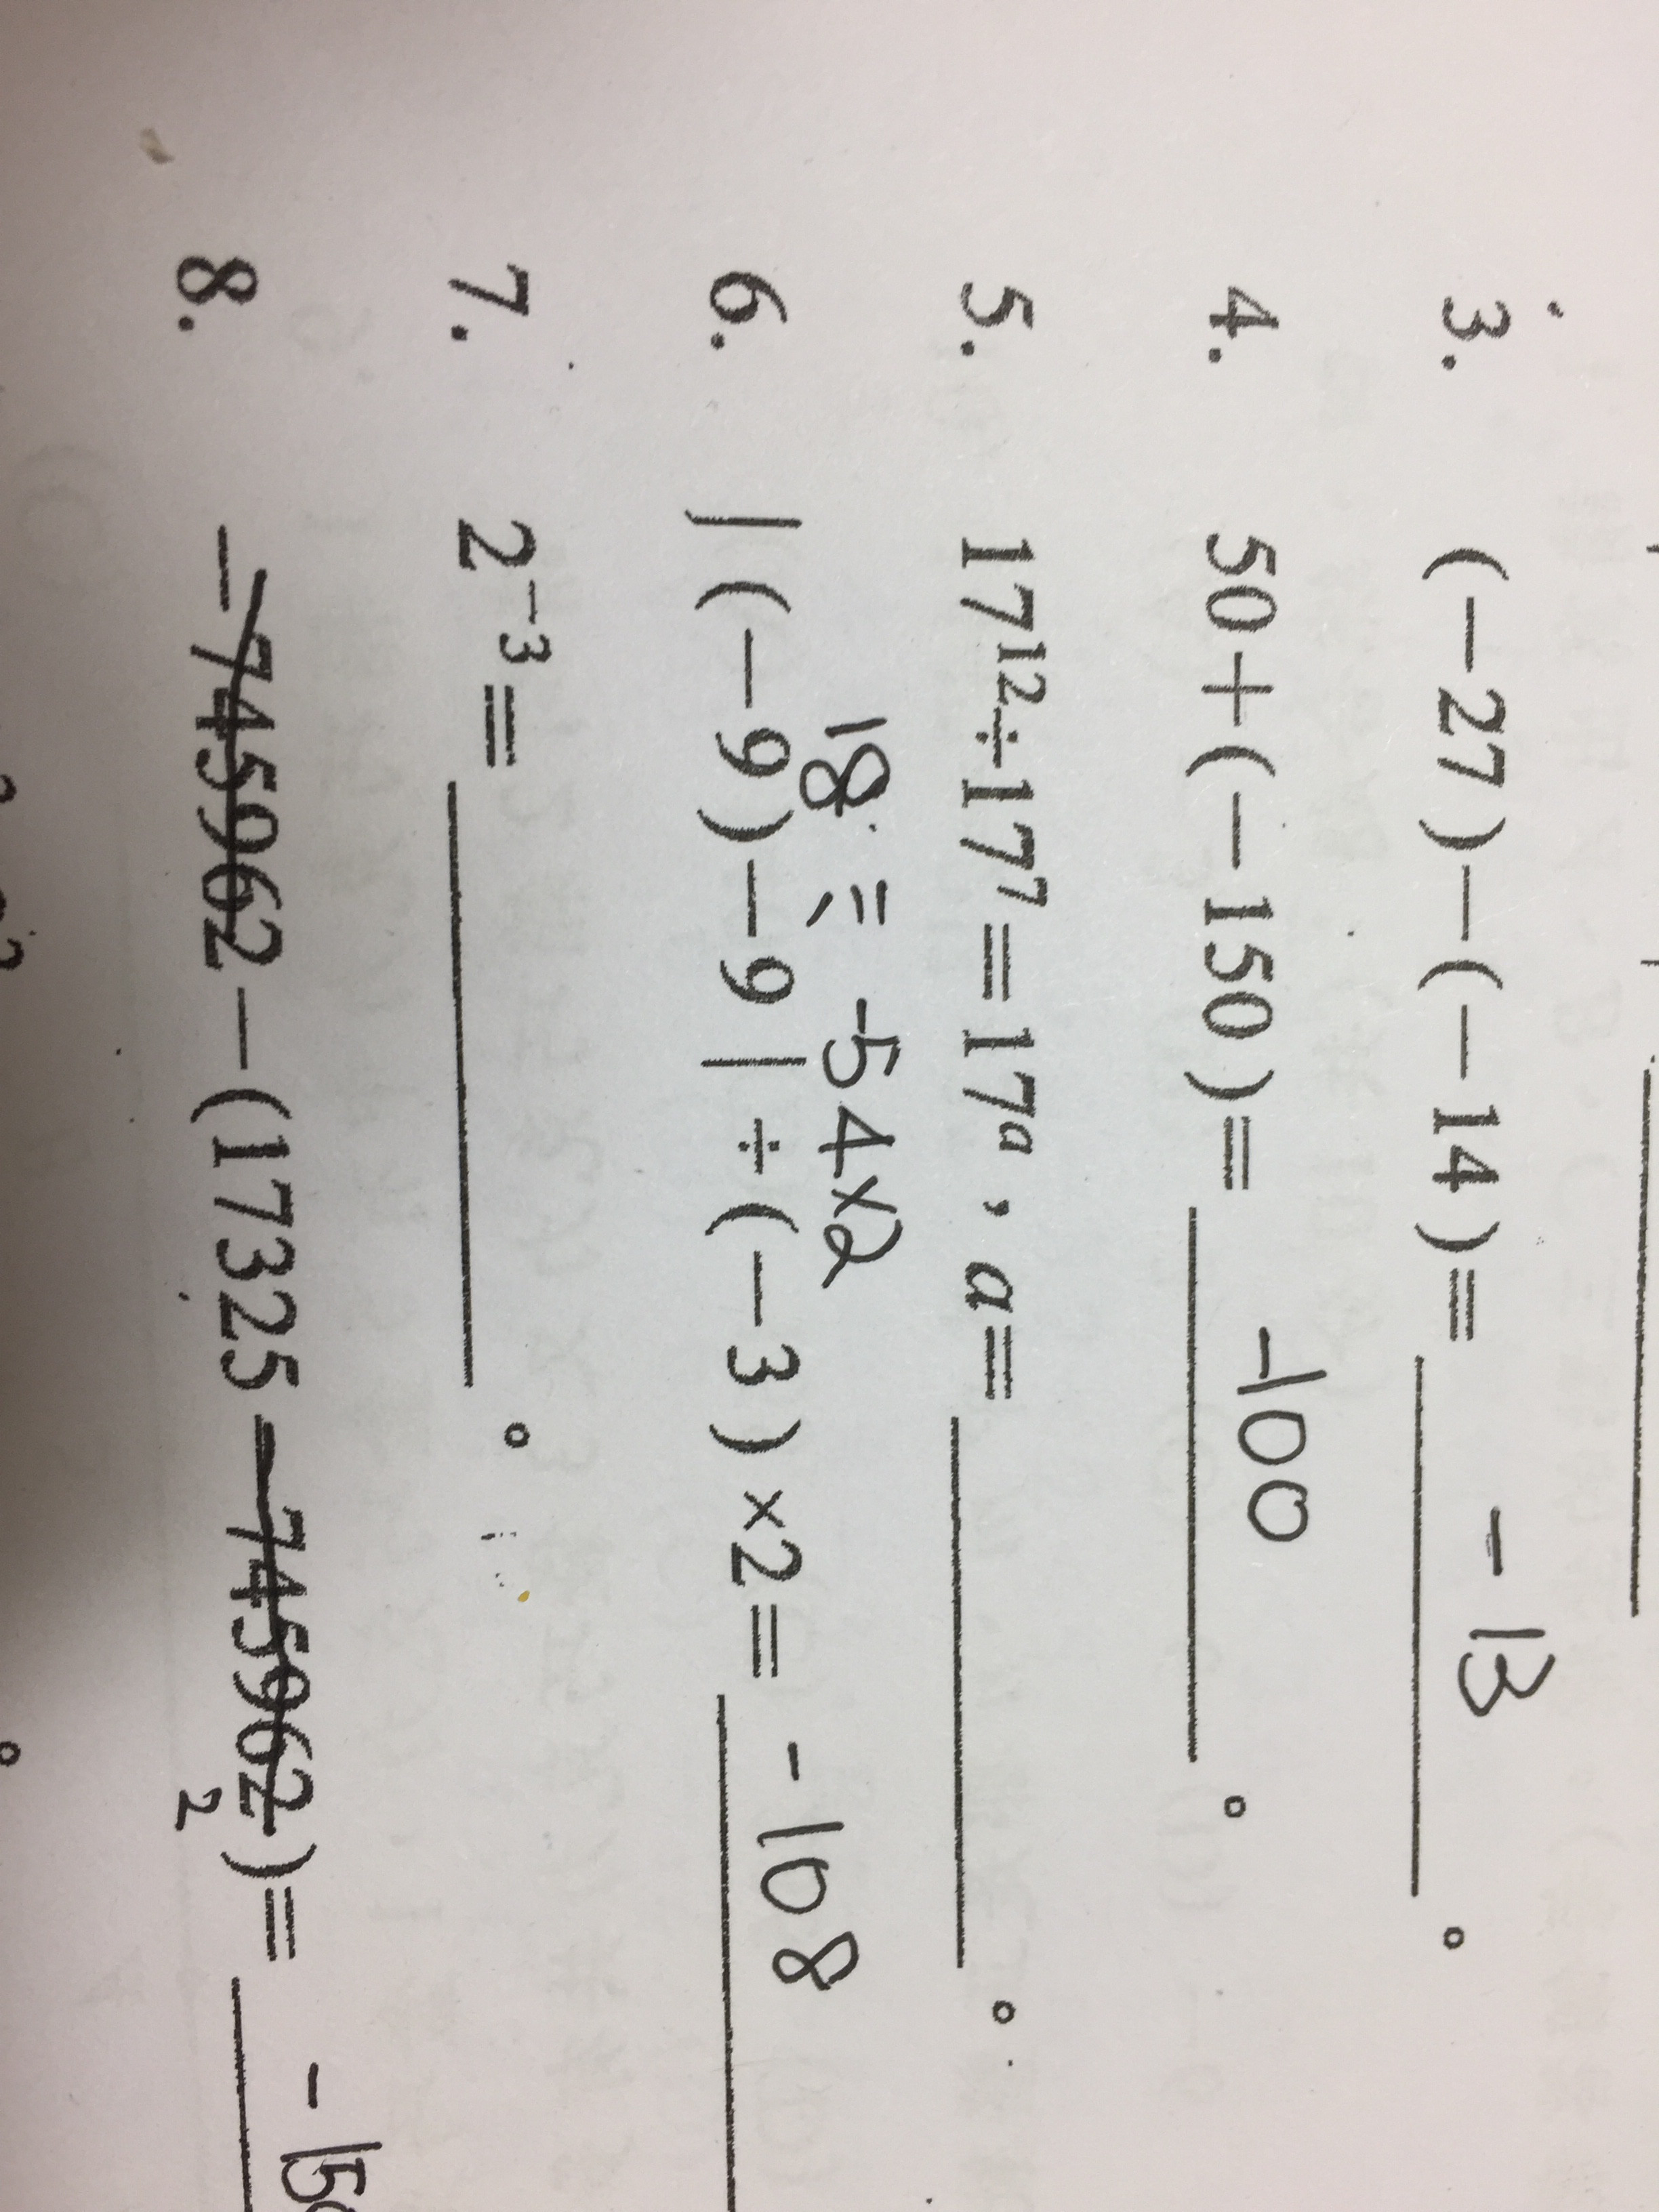 3. (-27)-(-14)= -13 。
4. 50+(-150)= -100 。
5. 17¹²÷17⁷=17ᵃ，a= 。
18 = -54×2
6. |(-9)-9|÷(-3)×2= -108
7. 2⁻³= 。
8. -745962-(17325-745962)=
2